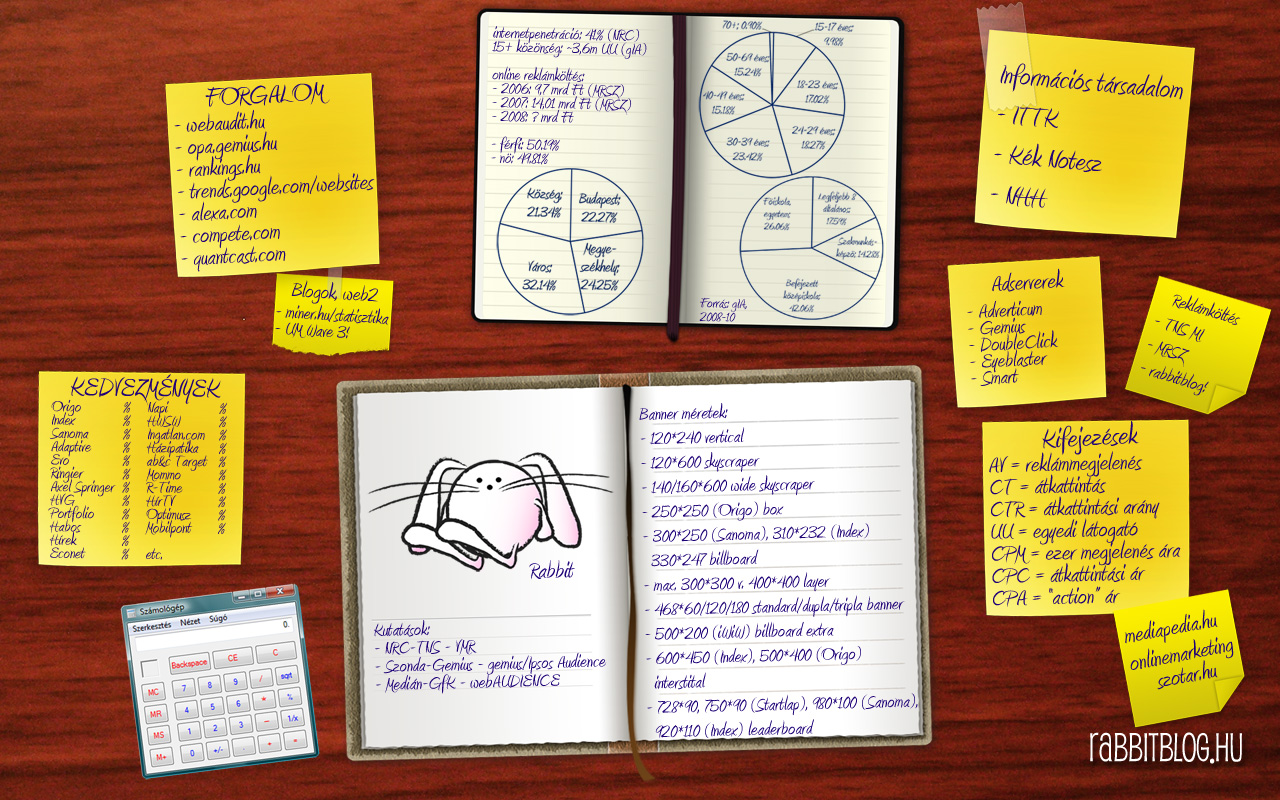 FORGALOM
- webaudit.hu
- opa.gemius.hu
- rankings.hu
- trends.google.com/websites
- alexa.com
- compete.com
- quantcast.com
Blogok, web2
- miner.hu/statisztika
- UM Wave 3!
KEDVEZMÉNYEK
Origo % Napi %
Index % HWSW %
Sanoma % Ingatlan.com %
Adaptive % Házipatika %
Evo % ab&c Target %
Ringier % Mommo %
Axel Springer % R-Time %
HVG % HírTV %
Portfolio % Optimusz %
Habos % Mobilpont %
Hírek %
Econet % etc.
Számológép
Szerkesztés Nézet Súgó
0.
Backspace CE C
MC 7 8 9 / sqrt
MR 4 5 6 * %
MS 1 2 3 - 1/x
M+ 0 +/- . + =
internetpenetráció: 41% (NRC)
15+ közönség: ~3,6m UU (gIA)
online reklámköltés:
- 2006: 9,7 mrd Ft (MRSZ)
- 2007: 14,01 mrd Ft (MRSZ)
- 2008: ? mrd Ft
- férfi: 50.19%
- nö: 49.81%
Község;
21.34%
Budapest;
22.27%
Város;
32.14%
Megye-
székhely;
24.25%
70+; 0.90%
15-17 éves
9.98%
50-69 éves
15.24%
18-23 éves
17.02%
40-49 éves
15.18%
24-29 éves
18.27%
30-39 éves
23.42%
Föiskola
egyetem
26.06%
Legfeljebb 8
általános
17.59%
Szakmunkás-
képzö; 14.28%
Befejezett
középiskola
42.06%
Forrás: gIA,
2008-10
Rabbit
Kutatások:
- NRC-TNS - VMR
- Szonda-Gemius - gemius/Ipsos Audience
- Medián-GfK - webAUDIENCE
Banner méretek:
- 120*240 vertical
- 120*600 skyscraper
- 140/160*600 wide skyscraper
- 250*250 (Origo) box
- 300*250 (Sanoma), 310*232 (Index)
330*247 billboard
- max. 300*300 v. 400*400 layer
- 468*60/120/180 standard/dupla/tripla banner
- 500*200 (iWiW) billboard extra
- 600*450 (Index), 500*400 (Origo)
interstital
- 728*90, 750*90 (Startlap), 980*100 (Sanoma),
920*110 (Index) leaderboard
Információs társadalom
- ITTK
- Kék Notesz
- NHH
Adserverek
- Adverticum
- Gemius
- DoubleClick
- Eyeblaster
- Smart
Reklámköltés
- TNS MI
- MRSZ
- rabbitblog!
Kifejezések
AV = reklámmegjelenés
CT = átkattintás
CTR = átkattintási arány
UU = egyedi látogató
CPM = ezer megjelenés ára
CPC = átkattintási ár
CPA = "action" ár
mediapedia.hu
onlinemarketing
szotar.hu
RABBITBLOG.HU